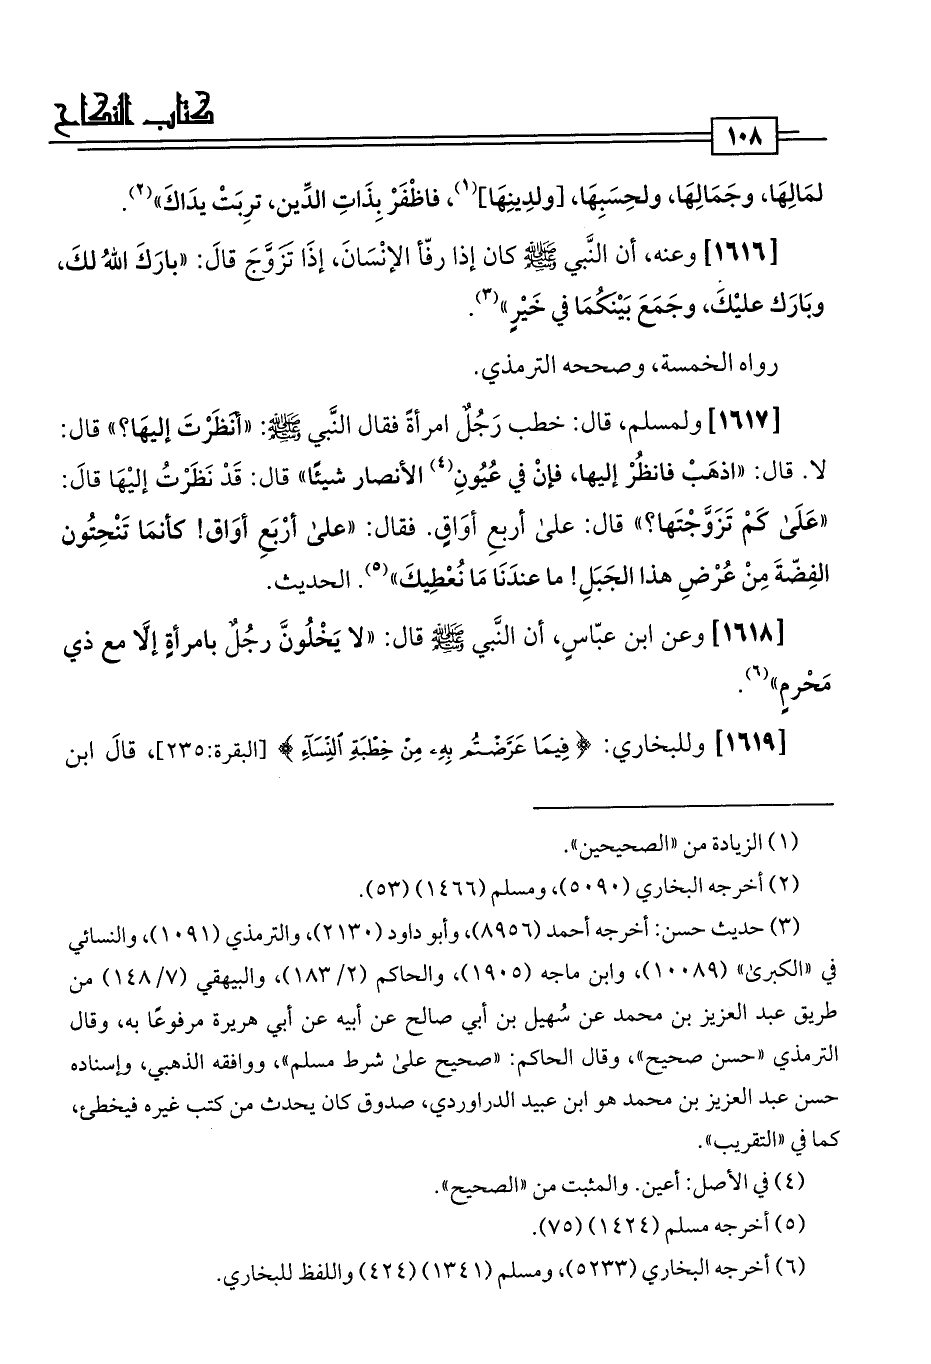 كتاب النكاح
١٠٨
لمَالِهَا، وجَمَالِهَا، ولحِسَبِهَا، [ولدِينِهَا](١)، فاظْفَرْ بِذَاتِ الدِّين، تربَتْ يدَاكَ»(٢).
[١٦١٦] وعنه، أن النَّبي ﷺ كان إذا رفّأ الإنْسَانَ، إذَا تَزَوَّجَ قالَ: «بارَكَ اللهُ لكَ،
وبَارَك عليْكَ، وجَمَعَ بَيْنَكُمَا في خَيْرٍ»(٣).
رواه الخمسة، وصححه الترمذي.
[١٦١٧] ولمسلم، قال: خطب رَجُلٌ امرأةً فقال النَّبي ﷺ: «أنَظَرْتَ إليهَا؟» قال:
لا. قال: «اذهَبْ فانظُرْ إليها، فإنْ في عُيُونِ(٤) الأنصار شيئًا» قال: قَدْ نَظَرْتُ إليْهَا قالَ:
«عَلَىٰ كَمْ تَزَوَّجْتَها؟» قال: علىٰ أربعِ أوَاقٍ. فقال: «علىٰ أرْبَعِ أوَاق! كأنمَا تَنْحِتُون
الفِضّةَ مِنْ عُرْضِ هذا الجَبَلِ! ما عندَنَا مَا نُعْطِيكَ»(٥). الحديث.
[١٦١٨] وعن ابن عبّاسٍ، أن النَّبي ﷺ قال: «لا يَخْلُونَّ رجُلٌ بامرأةٍ إلَّا مع ذي
مَحْرمٍ»(٦).
[١٦١٩] وللبخاري: ﴿فِيمَا عَرَّضْتُم بِهِۦ مِنْ خِطْبَةِ ٱلنِّسَآءِ﴾ [البقرة:٢٣٥]، قالَ ابن
(١) الزيادة من «الصحيحين».
(٢) أخرجه البخاري (٥٠٩٠)، ومسلم (١٤٦٦) (٥٣).
(٣) حديث حسن: أخرجه أحمد (٨٩٥٦)، وأبو داود (٢١٣٠)، والترمذي (١٠٩١)، والنسائي
في «الكبرىٰ» (١٠٠٨٩)، وابن ماجه (١٩٠٥)، والحاكم (٢/ ١٨٣)، والبيهقي (٧/ ١٤٨) من
طريق عبد العزيز بن محمد عن سُهيل بن أبي صالح عن أبيه عن أبي هريرة مرفوعًا به، وقال
الترمذي «حسن صحيح»، وقال الحاكم: «صحيح علىٰ شرط مسلم»، ووافقه الذهبي، وإسناده
حسن عبد العزيز بن محمد هو ابن عبيد الدراوردي، صدوق كان يحدث من كتب غيره فيخطئ،
كما في «التقريب».
(٤) في الأصل: أعين. والمثبت من «الصحيح».
(٥) أخرجه مسلم (١٤٢٤) (٧٥).
(٦) أخرجه البخاري (٥٢٣٣)، ومسلم (١٣٤١) (٤٢٤) واللفظ للبخاري.